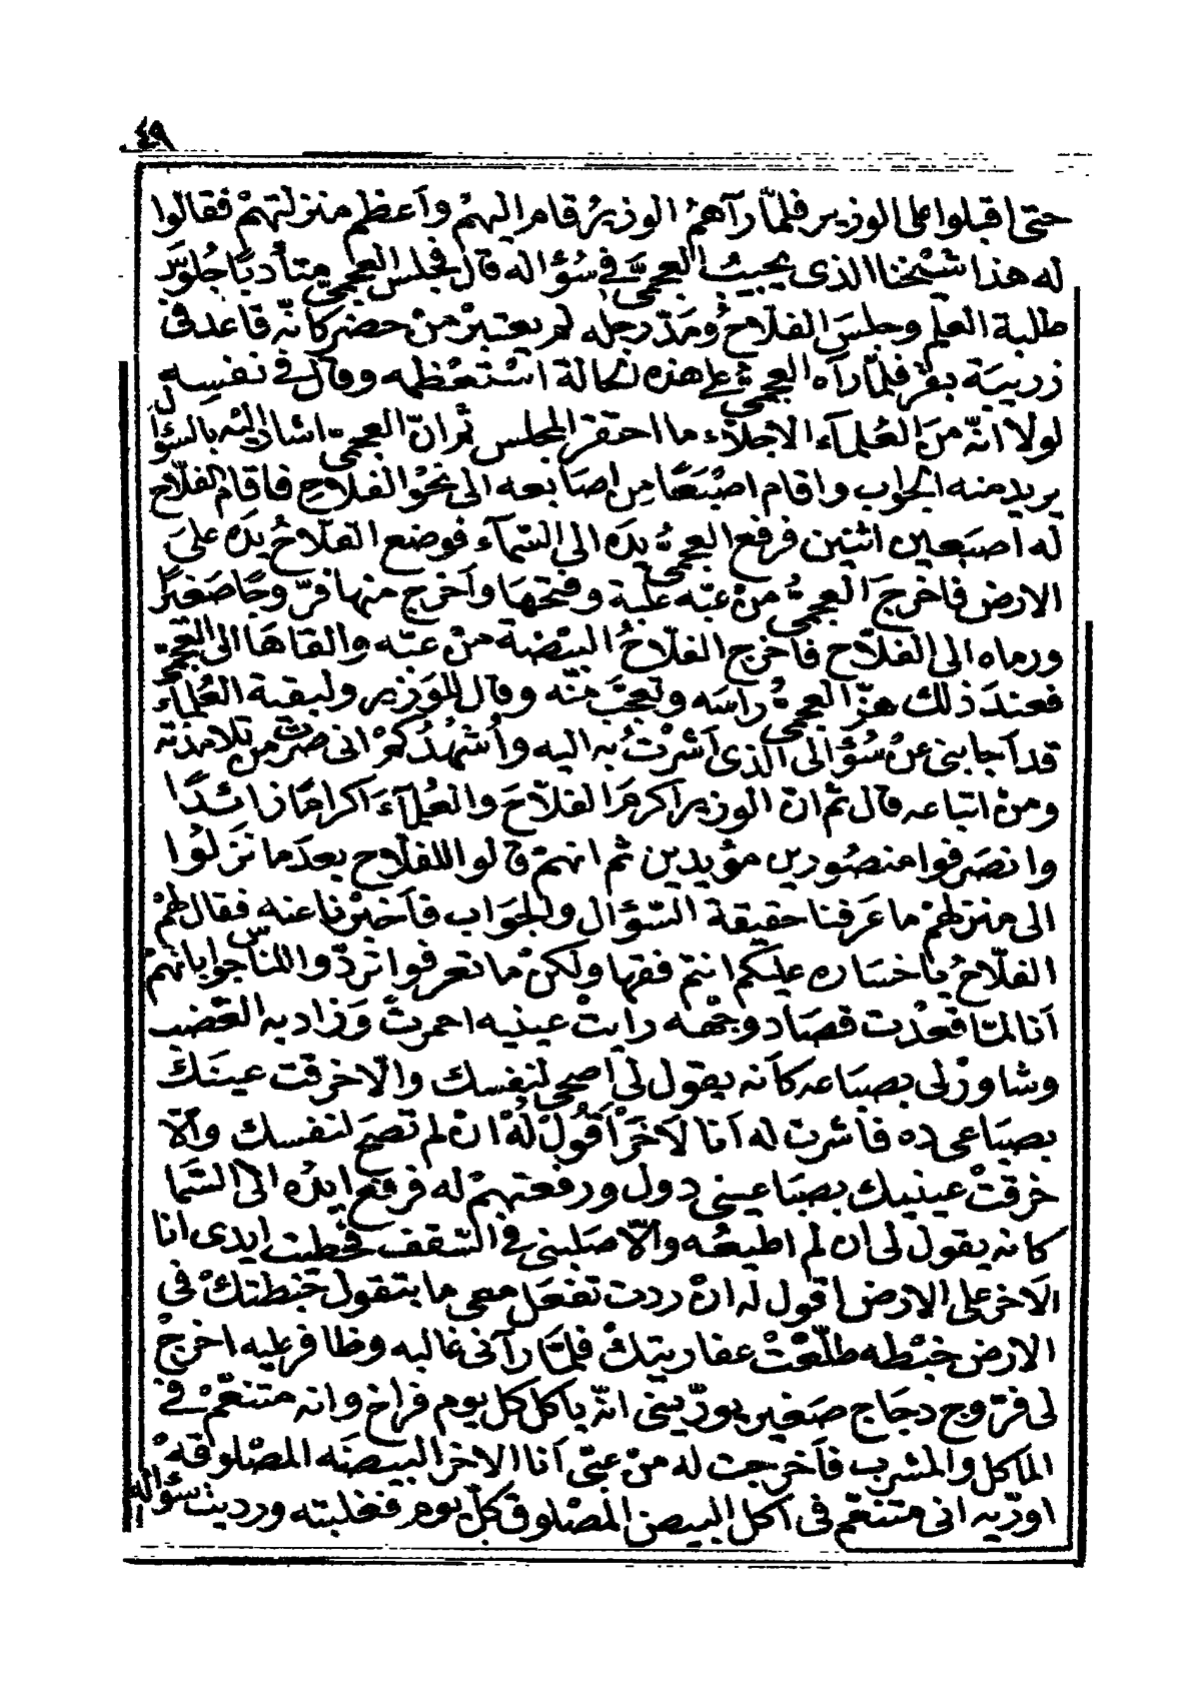 ٤٩
حتى اقبلوا على الوزير فلمّا رآهمُ الوزيرُ قام اليهمْ وأعظم منزلتهمْ فقالوا
له هذا شيْخنا الذى يجيبُ العجمىَّ فى سُؤاله قال فجلس العجمى متأدبًا جُلوسَ
طلبة العلم وجلسَ الفلاحُ ومَدّ رجله لم يعتبرْ منْ حضر كانّه قاعد فى
زريبَة بقر فلمّا رآه العجمىُّ على هذه الحالة اسْتعْظمه وقال فى نفسِه
لولا انّه منَ العُلمآء الاجلاّء ما احتقر المجلس ثم انّ العجمىّ اشار اليْه بالسؤال
يريد منه الجواب واقام اصْبَعًا من اصَابعه الى نحْوْ الفلاحِ فاقام الفلاح
له اصبَعين اثنين فرفع العجمىُّ يدَه الى السّمآء فوضع الفلاحُ يدَه علىَ
الارض فاخرجَ العجمىُّ منْ عبّه علبة وفتحهَا وأخرج منها فرّوجًا صَغيرًا
ورماه الى الفلاّح فأخرج الفلاّحُ البيْضة منْ عبّه والقاهَا الى العجمىّ
فعندَ ذلك هزّ العجمىُّ رأسَه وتعجّبَ منْه وقال للوَزير ولبقية العُلمآء
قد أجابنى عنْ سُؤالى الذى أشرْتُ به اليه وأشهدُكمْ انى صرتُ من تلامذته
ومنْ اتباعه قال ثم ان الوزير أكرمَ الفلاّحَ والعُلمآءَ اكرامًا زائدًا
وانصَرفوا منصُورين مؤيدين ثم انهمْ قالوا للفلاّح بعدَما نزَلوُا
الى منزلهمْ ما عَرفنا حقيقة السّؤال والجوَاب فأخبرْنا عنه فقال لهمْ
الفلاّحُ ياخسَاره عليكم انتم فقها ولكنْ ما تعرفوا تردّوا للناس جوابا نهمْ
أنا لمّا قعدْت قصَاد وجْهه رايتْ عينيه احمرتْ وَزاد به الغضب
وشاورْلى بصبَاعه كأنه يقول لى أصحى لنفسك والّا خرقت عينَكْ
بصبَاعى ده فأشرت له أنا لآخرْ أقُولْ لهُ انْ لم تصحَ لنفسك وألاّ
خرقتْ عينيك بصبَاعينى دول ورفعتهمْ له فرفع ايدُه الى السّما
كانه يقول لى ان لم اطيعُه وألاّ صلبنى فى السّقف فحطيت ايدى انا
الآخر على الارض اقول له انْ ردت تفعَل معى ما بتقول خبَطتكْ فى
الارض خبْطه طلّعتْ عفاريتكْ فلمّا رآنى غالبه وظافر عليه اخرجْ
لى فرّوج دجَاج صَغير يورّينى انّه ياكل كل يوم فراخ وانه متنعّمْ فى
الماكل والمشرب فأخرجت له منْ عبّى أنا الاخر البيضَه المصْلوقهْ
اورّيه انى متنعّم فى اكل البيض المصْلوق كلّ يوم فغلبته ورديتْ سؤاله